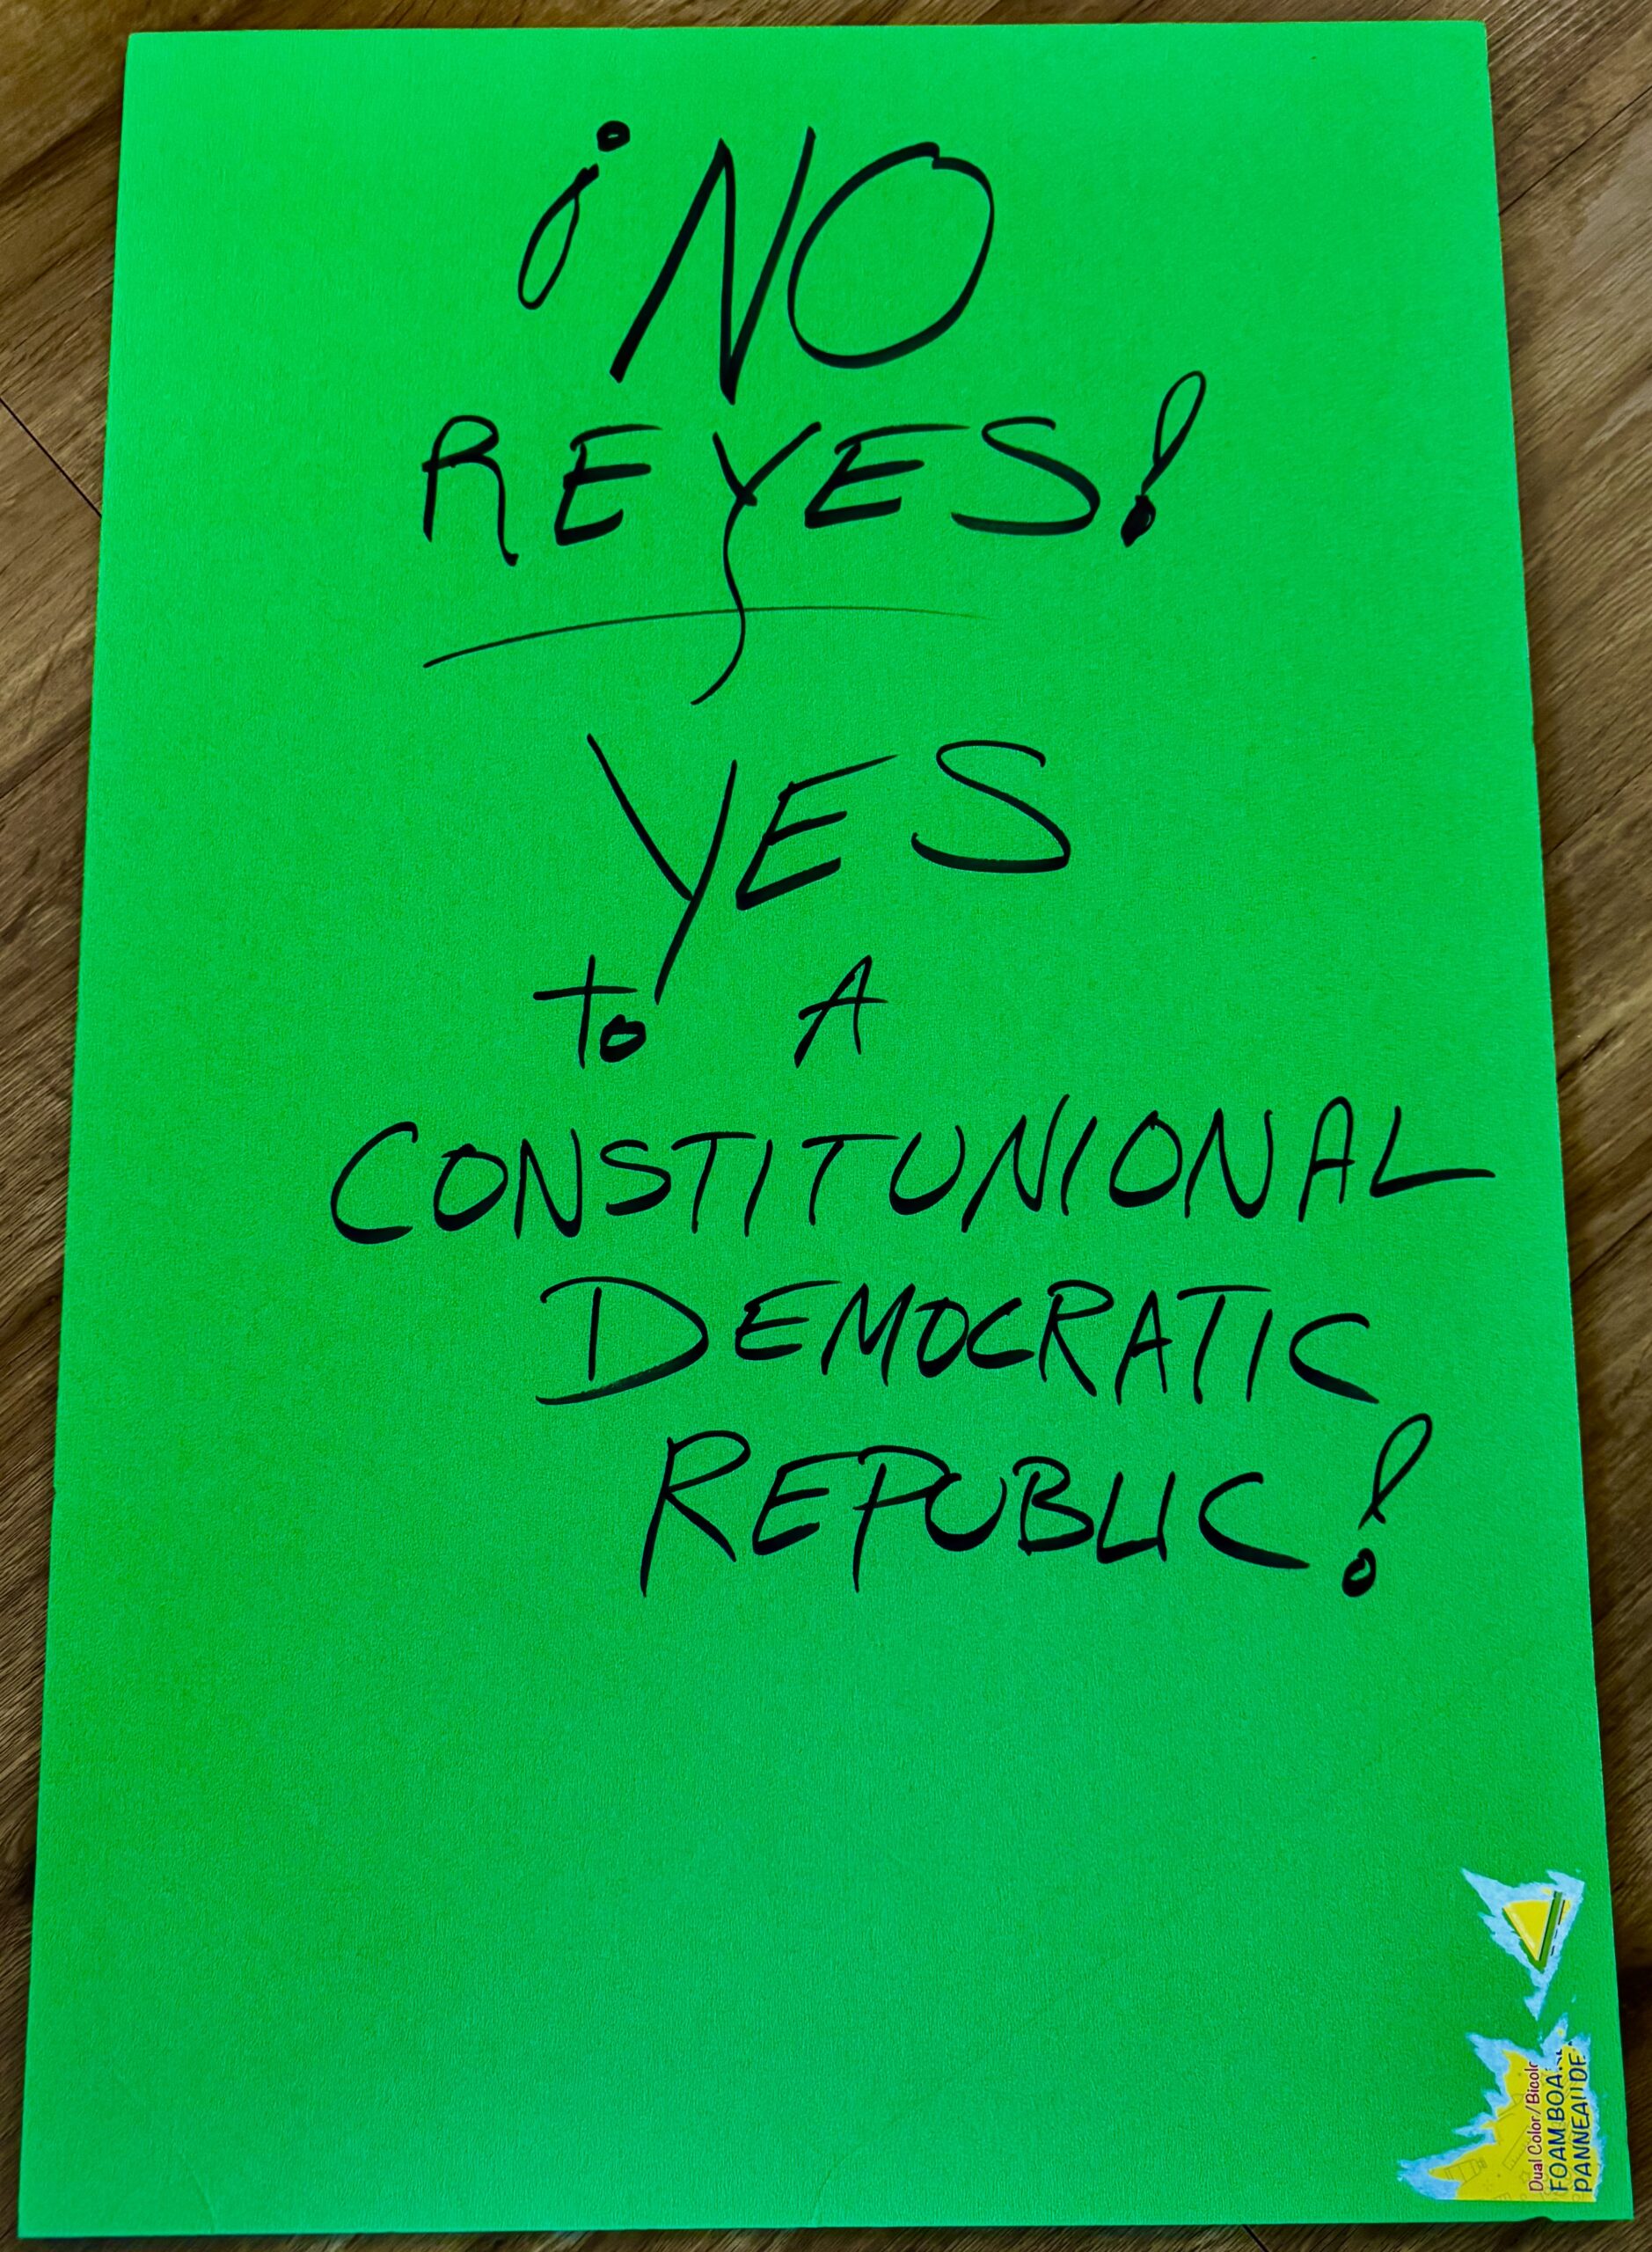 ¡NO
REYES!
YES
to A
CONSTITUNIONAL
DEMOCRATIC
REPUBLIC!
Dual Color/Bicolo
FOAM BOA
PANNEAU DE